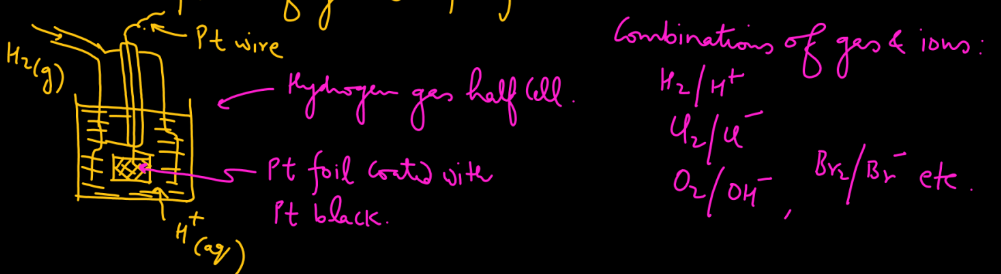 Pt wire
H2(g)
Hydrogen gas half cell.
Pt foil coated with
Pt black.
H+(aq)
Combinations of gas & ions:
H2/H+
Cl2/Cl-
O2/OH-, Br2/Br- etc.